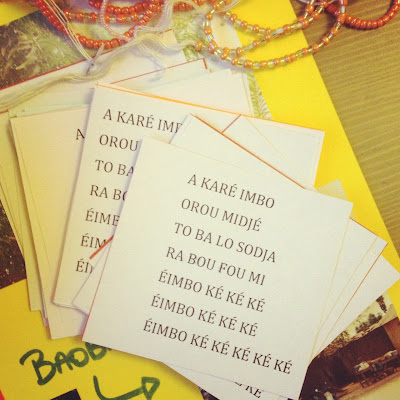 A KARÉ IMBO
OROU MIDJÉ
TO BA LO SODJA
RA BOU FOU MI
ÉIMBO KÉ KÉ KÉ
ÉIMBO KÉ KÉ KÉ
ÉIMBO KÉ KÉ KÉ KÉ KÉ
A KARÉ IMBO
OROU
TO BA
RA BOU
ÉIMBO
KÉ